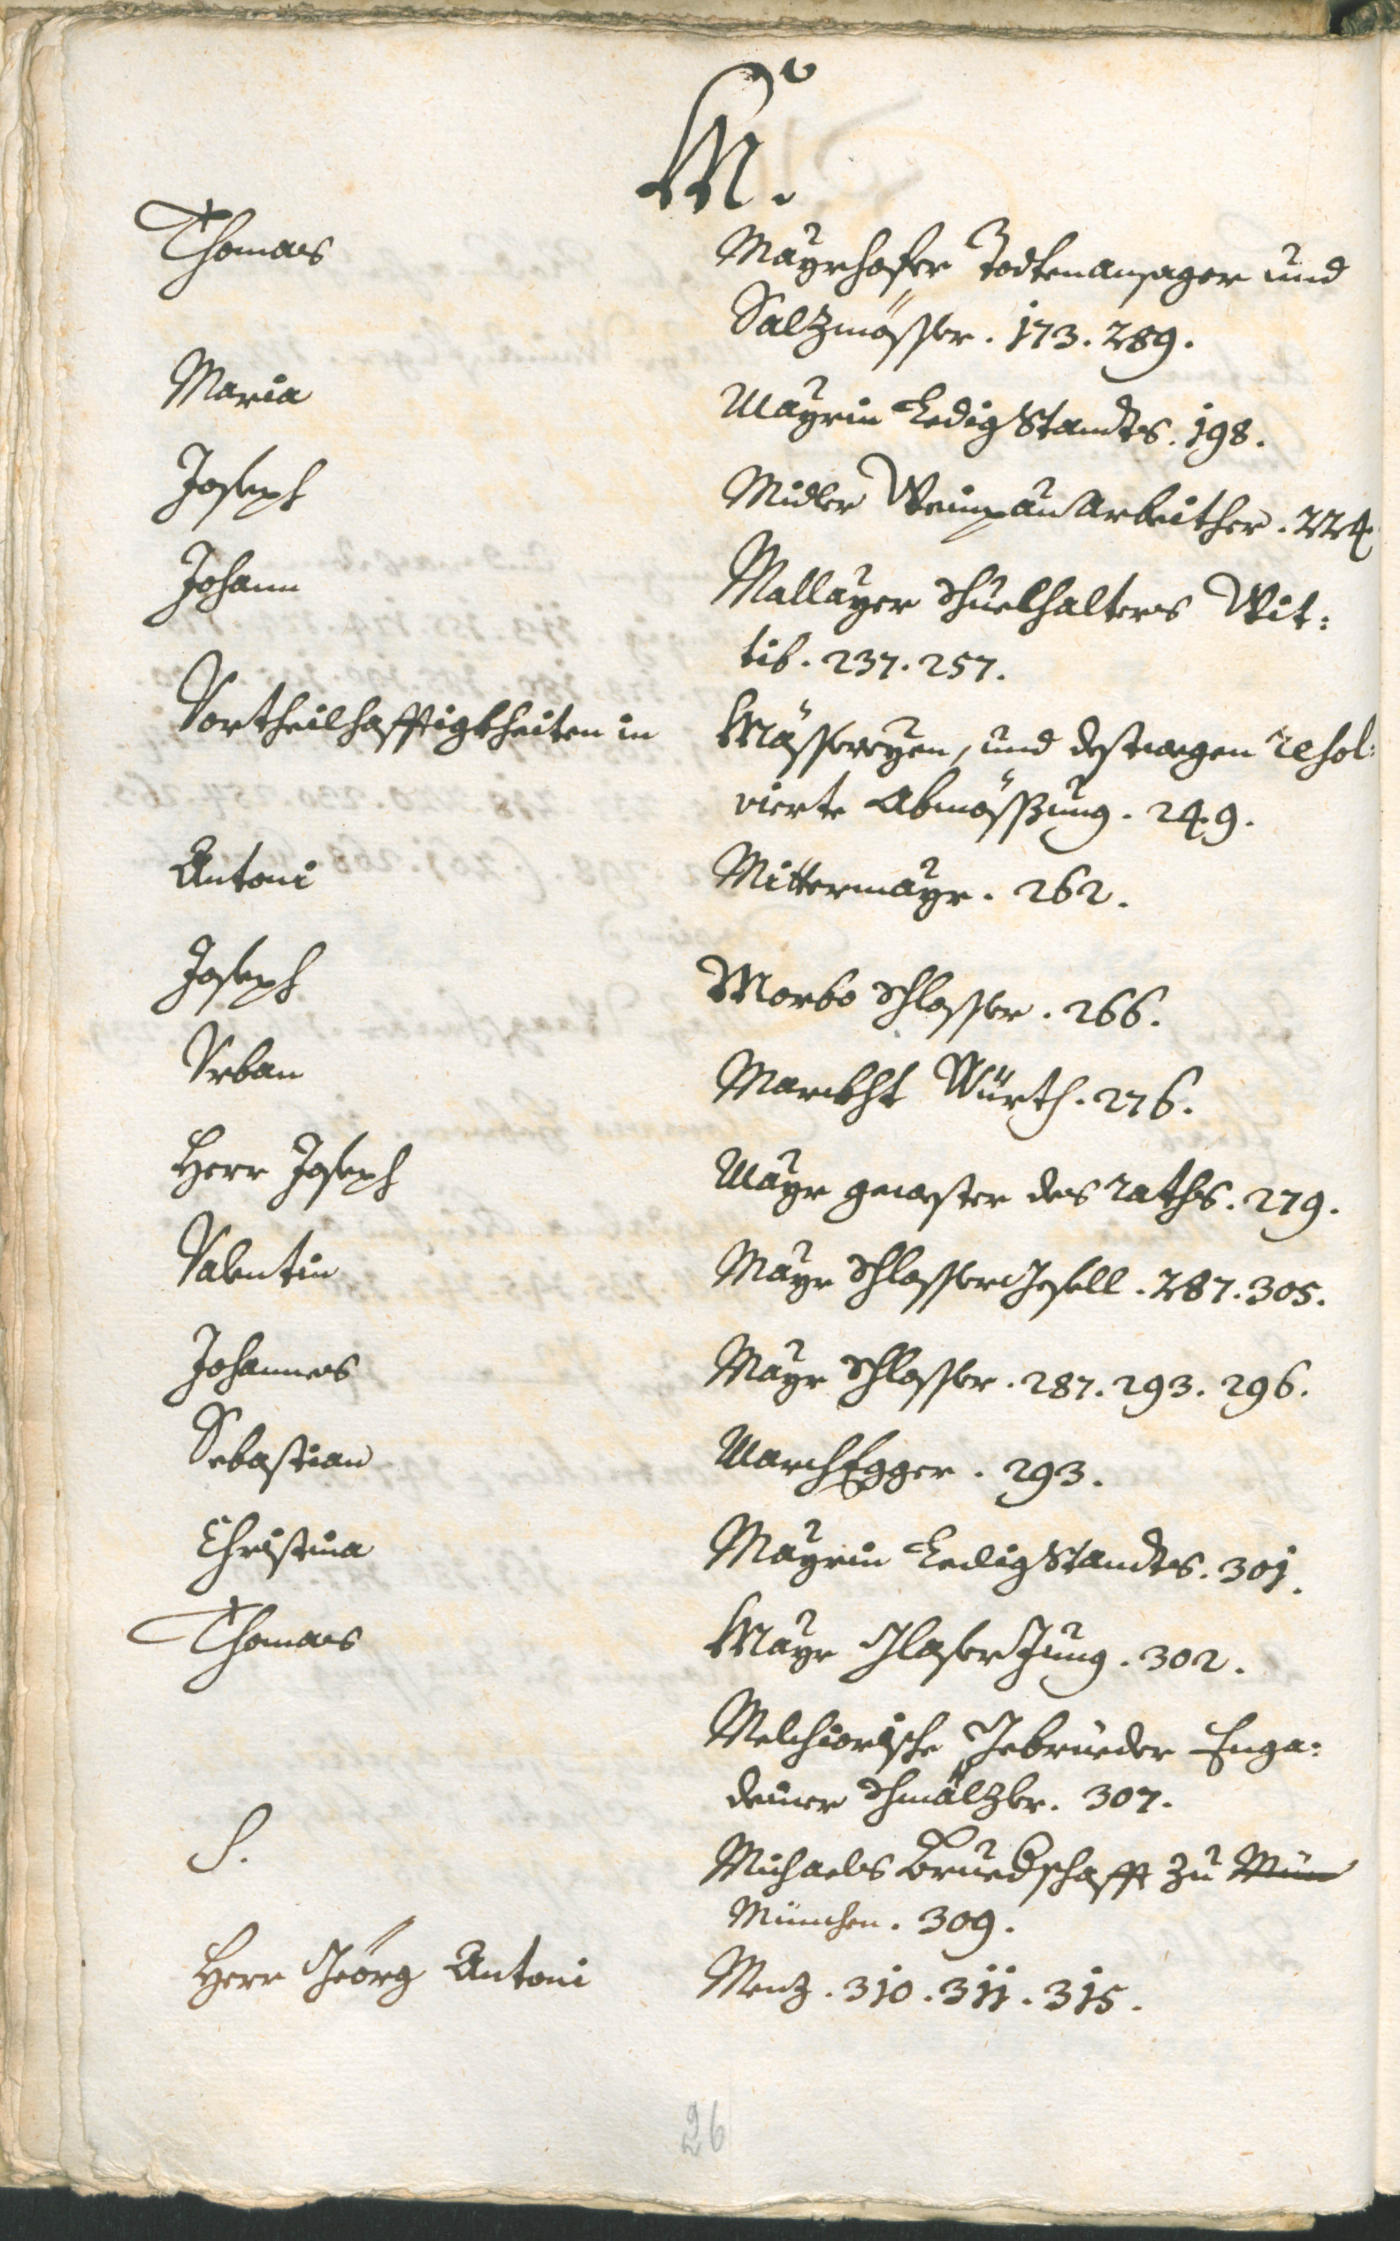 M.
Thomas Mayrhofer Todtenansager und
Saltzmösser. 173. 289.
Maria Mayrin Ledig Standts. 198.
Joseph Midler Weinpau Arbeither. 224
Johann Mallayer Schuelhalters Wit:
tib. 237. 257.
Vortheilhafftigkheiten in Mössereyen, und destwegen resol:
vierte Abmössung. 249.
Antoni Mittermayr. 262.
Joseph Morbo Schlosser. 266.
Urban Marckht Würth. 276.
Herr Joseph Mayr gewester des Raths. 279.
Valentin Mayr Schlosser Gesell. 287. 305.
Johannes Mayr Schlosser. 287. 293. 296.
Sebastian MarchEgger. 293.
Christina Mayrin Ledig Standts. 301.
Thomas Mayr Glaser Jung. 302.
Melchiorische Gebrüeder Enga:
deiner Schmältzler. 307.
S. Michaels Bruedschafft zu Mün
München. 309.
Herr Georg Antoni Menz. 310. 311. 315.
26